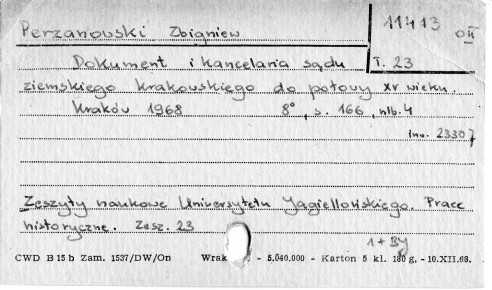 Perzanowski Zbigniew
11413 OII
T. 23
Dokument i kancelaria sądu
ziemskiego krakowskiego do połowy XV wieku.
Kraków 1968 8°, s. 166, nlb. 4
Inw. 23307
Zeszyty naukowe Uniwersytetu Jagiellońskiego. Prace
historyczne. Zesz. 23
1+By
CWD B 15 b Zam. 1537/DW/On Wrak - 5.040.000 - Karton 5 kl. 180 g, - 10.XII.68.